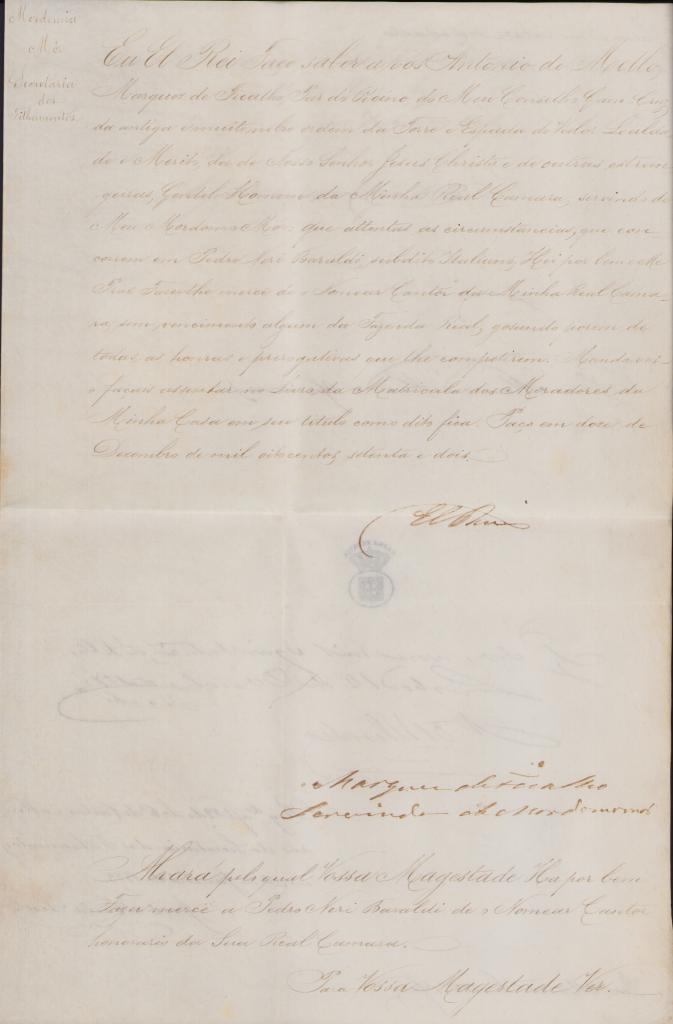 Mordomia
Mór
Secretaria
dos
Filhamentos.
Eu El Rei Faço saber a vós Antonio de Mello,
Marquez de Ficalho Par do Reino do Meu Conselho Gram-Cruz
da antiga e muito nobre ordem da Torre e Espada do Valor Lealda-
de e Merito, da de Nosso Senhor Jesus Christo e de outras estran-
geiras, Gentil Homem da Minha Real Camara, servindo de
Meu Mordomo Mór: que attentas as circumstancias, que con-
correm em Pedro Neri Baraldi, subdito Italiano, Hei por bem e Me
Praz Fazer-lhe mercê de o Nomear Cantor da Minha Real Cama-
ra, sem vencimento algum da Fazenda Real, gosando porem de
todas as honras e prerogativas que lhe competirem. Mando-vos
o façaes assentar no livro da Matricula dos Moradores da
Minha Casa em seu titulo como dito fica. Paço em doze de
Dezembro de mil oitocentos, setenta e dois.
El Rei
Marquez de Ficalho
Servindo de Mordomo mór
Alvará pelo qual Vossa Magestade Ha por bem
Fazer mercê a Pedro Neri Baraldi de o Nomear Cantor
honorario da Sua Real Camara.
Para Vossa Magestade Ver.